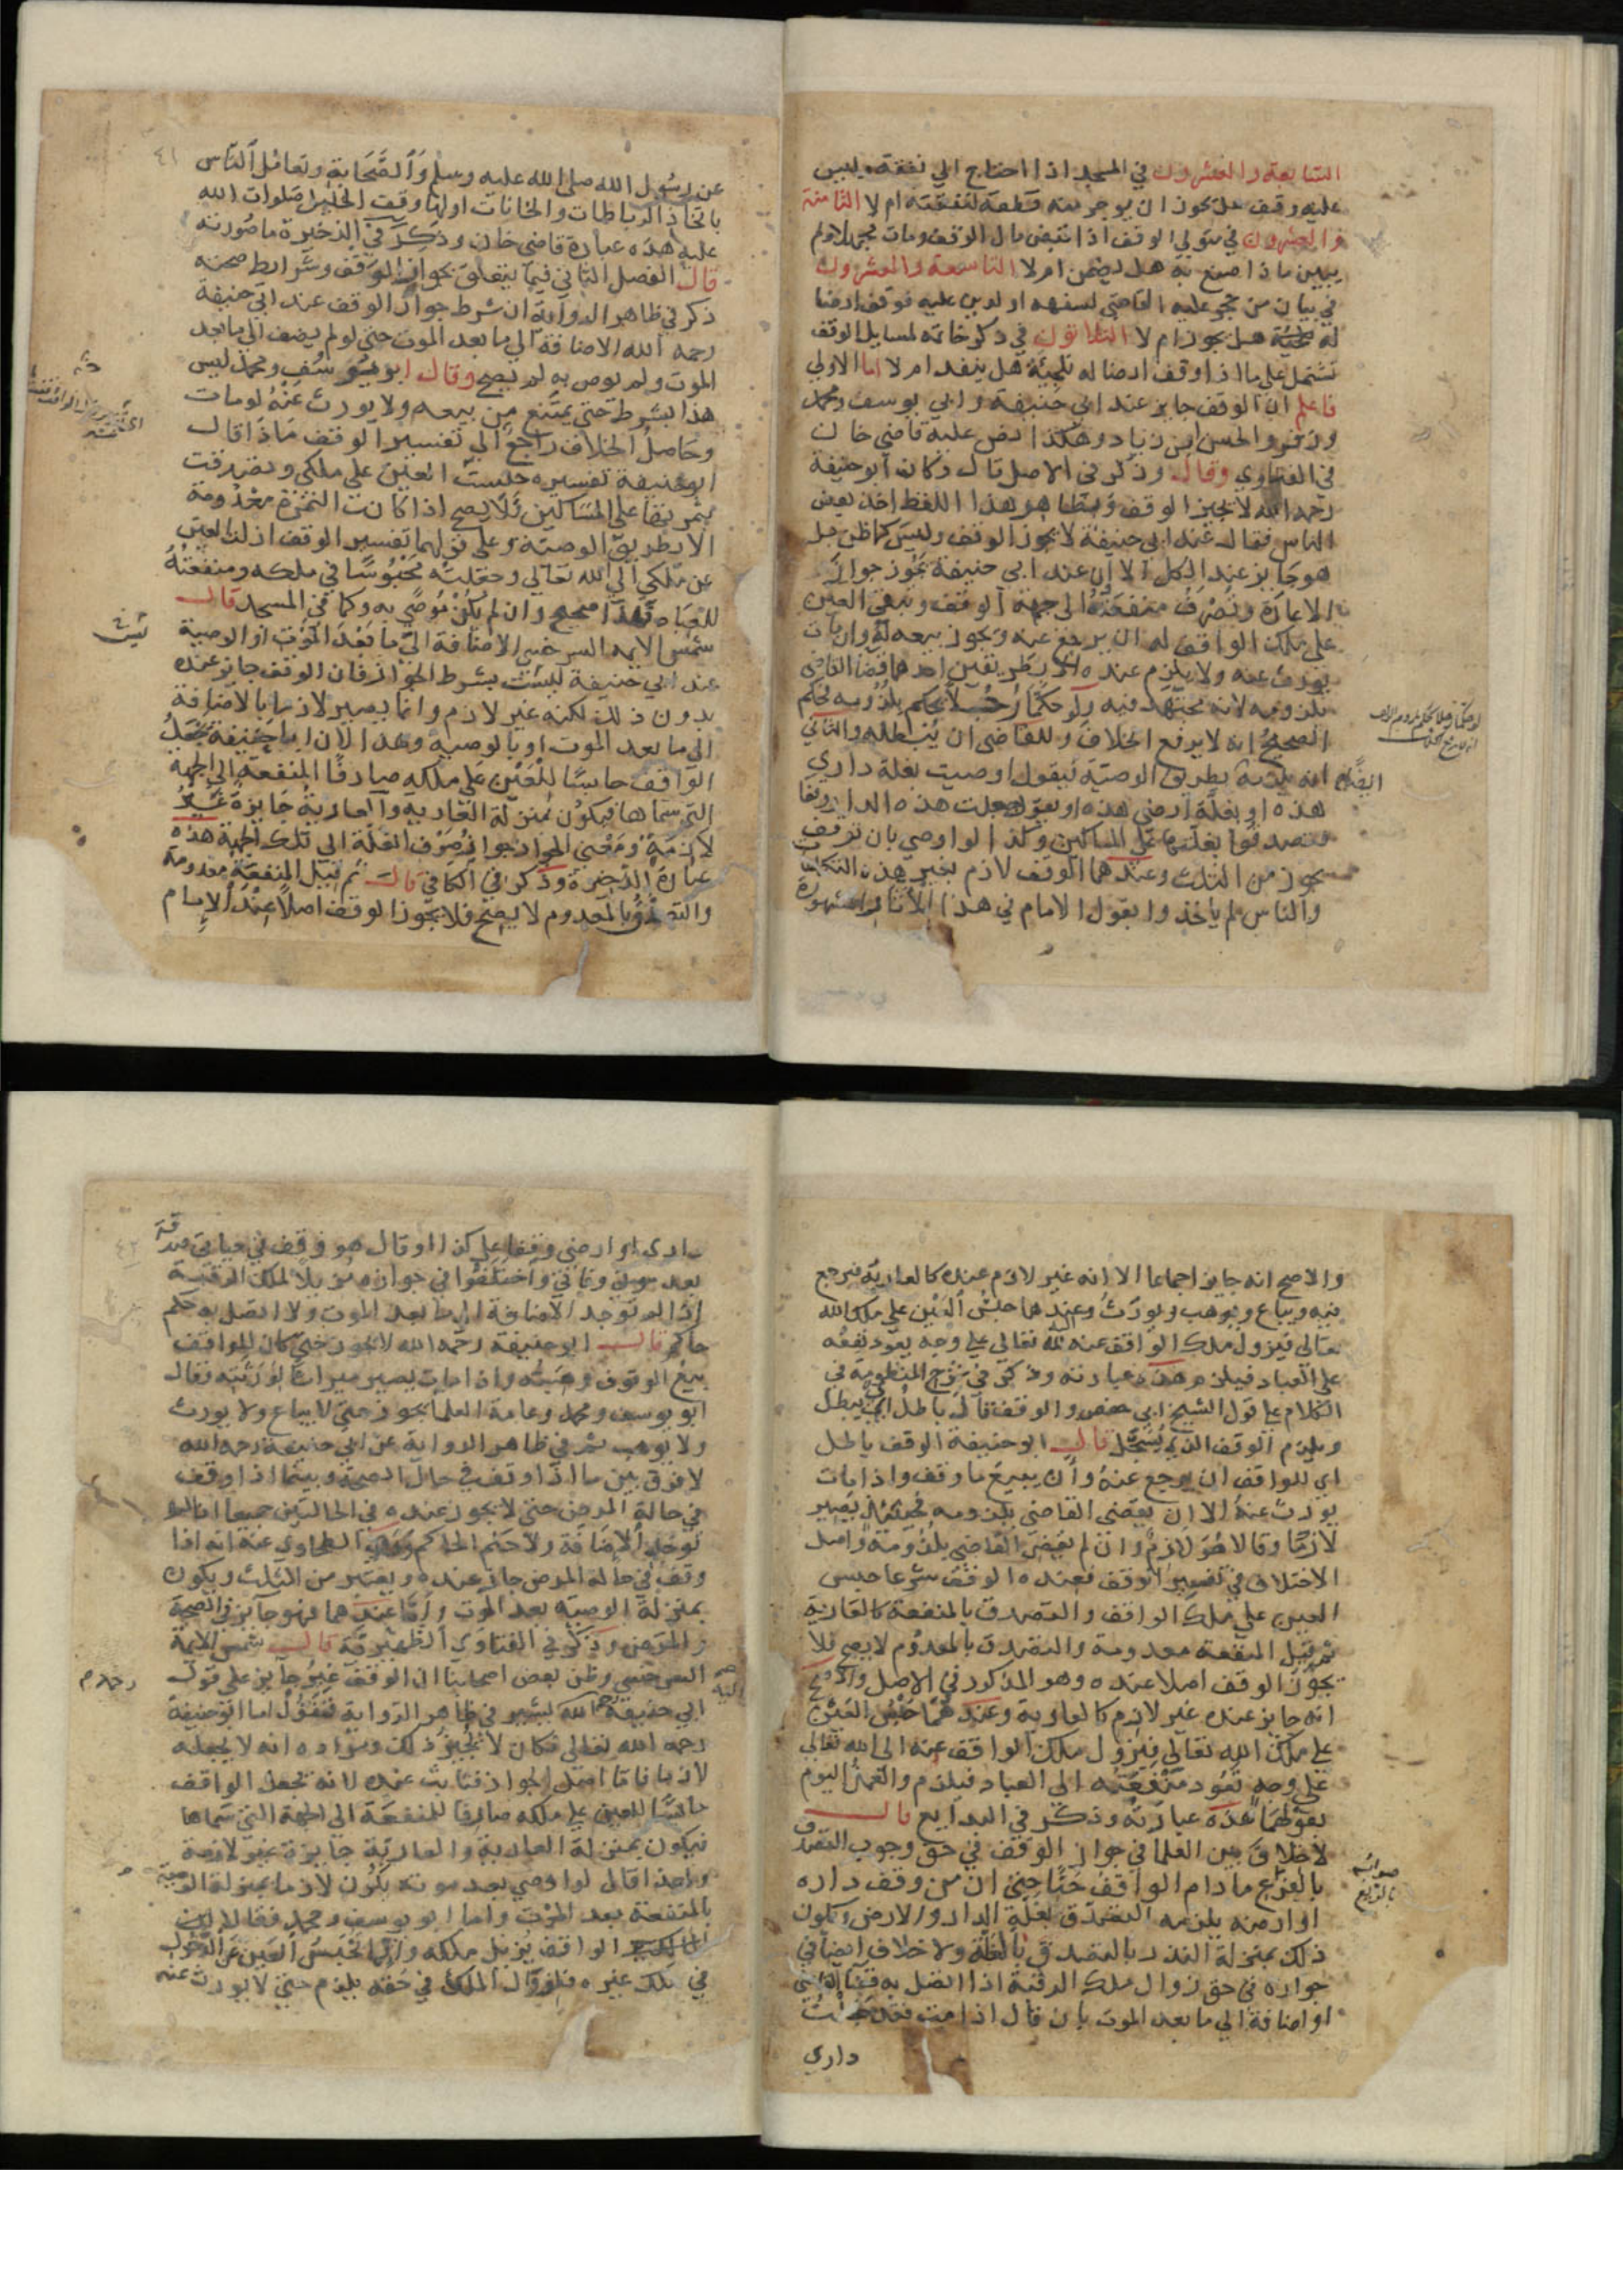 السابعة والعشرون في المسجد اذا احتاج الي نفقة وليس
عليه وقف هل يجوز ان يوجر منه قطعة لنفقته ام لا الثامنة
والعشرون في متولي الوقف اذا قبض مال الوقف ومات مجهلا ولم
يبين ماذا صنع به هل يضمن ام لا التاسعة والعشرون
في بيان من حجر عليه القاضي لسفهه او لدين عليه فوقف ارضا
له هل يجوز ام لا الثلاثون في ذكر خاتمه لمسايل الوقف
تشتمل علي ما اذا وقف ارضا له تلجئة هل ينفذ ام لا اما الاولي
فاعلم ان الوقف جايز عند ابي حنيفة وابي يوسف ومحمد
وزفر والحسن ابن زياد وهكذا نص عليه قاضي خان
في الفتاوي وقال وذكر في الاصل قال وكان ابو حنيفة
رحمه الله لا يجيز الوقف وبظاهر هذا اللفظ اخذ بعض
الناس فقال عند ابي حنيفة لا يجوز الوقف وليس كما ظن بل
هو جايز عند الكل الا ان عند ابي حنيفة يجوز جواز
الاعارة وتصرف منفعته الى جهة الوقف ويبقي العين
علي ملك الواقف له ان يرجع عنه ويجوز بيعه له وان مات
يورث عنه ولا يلزم عنده الا بطريقين احدهما قضا القاضي
بلزومه لانه مجتهد فيه ولو حكما رجلا يحكم بلزومه لحكم
الصحيح انه لا يرفع الخلاف وللقاضي ان يبطله والثاني
انه يلزمه بطريق الوصية فيقول اوصيت بغلة داري
هذه او بغلة ارضي هذه او يقول جعلت هذه الدار وقفا
فتصدقوا بغلتها علي المساكين وكذا لو اوصي بان توقف
يجوز من الثلث وعندهما الوقف لازم بغير هذه التكلفات
والناس لم ياخذوا بقول الامام في هذا للآثار المشهورة
ايضا
عن رسول الله صلي الله عليه وسلم والصحابة وتعامل الناس
باتخاذ الرباطات والخانات اولها وقف الخليل صلوات الله
عليه هذه عبارة قاضي خان وذكر في الذخيرة ما صورته
قال الفصل الثاني فيما يتعلق بجواز الوقف وشرايط صحته
ذكر في ظاهر الرواية ان شرط جواز الوقف عند ابي حنيفة
رحمه الله الاضافة الي ما بعد الموت حتي لو لم يضف الي ما بعد
الموت ولم يوص به لم يصح وقال ابو يوسف ومحمد ليس
هذا بشرط حتي يمتنع من بيعه ولا يورث عنه لو مات
وحاصل الخلاف راجع الي تفسير الوقف ماذا قال
ابو حنيفة تفسيره حبست العين علي ملكي وتصدقت
بثمرتها علي المساكين ولا يصح اذا كانت الثمرة معدومة
الا بطريق الوصية وعلي قولهما تفسير الوقف ازلت العين
عن ملكي الي الله تعالي وجعلته محبوسا في ملكه ومنفعته
للعباد وهذا صحيح وان لم يكن موصي به وكما في المسجد قال
شمس الايمه السرخسي الاضافة الي ما بعد الموت او الوصية
عند ابي حنيفة ليست بشرط الجواز فان الوقف جايز عنده
بدون ذلك لكنه غير لازم وانما يصير لازما بالاضافة
الي ما بعد الموت او بالوصية وهذا لان ابا حنيفة يجعل
الواقف حابسا للعين علي ملكه صارفا المنفعة الي الجهة
التي سماها فيكون بمنزلة العارية والعارية جايزة غير
لازمة ومعني الجواز جواز صرف الغلة الي تلك الجهة هذه
عبارة الذخيرة وذكر في الكافي قال ثم قيل المنفعة معدومة
والتصدق بالمعدوم لا يصح فلا يجوز الوقف اصلا عند الامام
والاصح انه جايز اجماعا الا انه غير لازم عنده كالعارية فيرجع
فيه ويباع ويوهب ويورث وعندهما حبس العين علي ملك الله
تعالي فيزول ملك الواقف عنه لله تعالي علي وجه يعود نفعه
علي العباد فيلزم هذه عبارته وذكر في شرح المنظومة في
الكلام علي قول الشيخ ابي حفص والوقف قال باطل اي يبطل
ويلزم الوقف الذي يسجل قال ابو حنيفة الوقف باطل
اي للواقف ان يرجع عنه وان يبيع ما وقف واذا مات
يورث عنه الا ان يقضي القاضي بلزومه فحينئذ يصير
لازما وقالا هو لازم وان لم يقض القاضي بلزومه واصل
الاختلاف في تفسير الوقف فعنده الوقف شرعا حبس
العين علي ملك الواقف والتصدق بالمنفعة كالعارية
ثم قيل المنفعة معدومة والتصدق بالمعدوم لا يصح فلا
يجوز الوقف اصلا عنده وهو المذكور في الاصل والاصح
انه جايز عنده غير لازم كالعارية وعندهما حبس العين
علي ملك الله تعالي فيزول ملك الواقف عنه الي الله تعالي
علي وجه تعود منفعته الي العباد فيلزم والعمل اليوم
بقولهما هذه عبارته وذكر في البدايع قال
لا خلاف بين العلما في جواز الوقف في حق وجوب التصدق
بالفرع ما دام الواقف حيا حتي ان من وقف داره
او ارضه يلزمه التصدق بغلة الدار والارض ويكون
ذلك بمنزلة النذر بالتصدق بالغلة ولا خلاف ايضا في
جوازه في حق زوال ملك الرقبة اذا اتصل به قضا القاضي
او اضافة الي ما بعد الموت بان قال اذا مت فقد جعلت
داري
داري او ارضي وقفا علي كذا او قال هو وقف في حياتي صدقة
بعد وفاتي واختلفوا في جوازه مزيلا لملك الرقبة
اذا لم توجد الاضافة الي ما بعد الموت ولا اتصل به حكم
حاكم قال ابو حنيفة رحمه الله لا يجوز حتي كان للواقف
بيع الموقوف وهبته واذا مات يصير ميراثا لورثته وقال
ابو يوسف ومحمد وعامة العلما يجوز حتي لا يباع ولا يورث
ولا يوهب ثم في ظاهر الرواية عن ابي حنيفة رحمه الله
لا فرق بين ما اذا وقف في حال الصحة وبينما اذا وقف
في حالة المرض حتي لا يجوز عنده في الحالتين جميعا اذا لم
توجد الاضافة ولا حكم الحاكم وروي الطحاوي عنه انه اذا
وقف في حالة المرض جاز عنده ويعتبر من الثلث ويكون
بمنزلة الوصية بعد الموت واما عندهما فهو جايز في الصحة
والمرض وذكر في الفتاوي الظهيرية قال شمس الايمة
السرخسي وظن بعض اصحابنا ان الوقف غير جايز علي قول
ابي حنيفة رحمه الله يشير في ظاهر الرواية فنقول اما ابو حنيفة
رحمه الله تعالي فكان لا يجيز ذلك ومراده انه لا يجعله
لازما فاما اصل الجواز فثابت عنده لانه يجعل الواقف
حابسا للعين علي ملكه صارفا للمنفعة الي الجهة التي سماها
فيكون بمنزلة العارية والعارية جايزة غير لازمة
ولهذا قال لو اوصي بعد موته يكون لازما بمنزلة الوصية
بالمنفعة بعد الموت واما ابو يوسف ومحمد فقالا
الواقف يزيل ملكه وانما يحبس العين عن الدخول
في ملك غيره وزوال الملك في حقه يلزم حتي لا يورث عنه